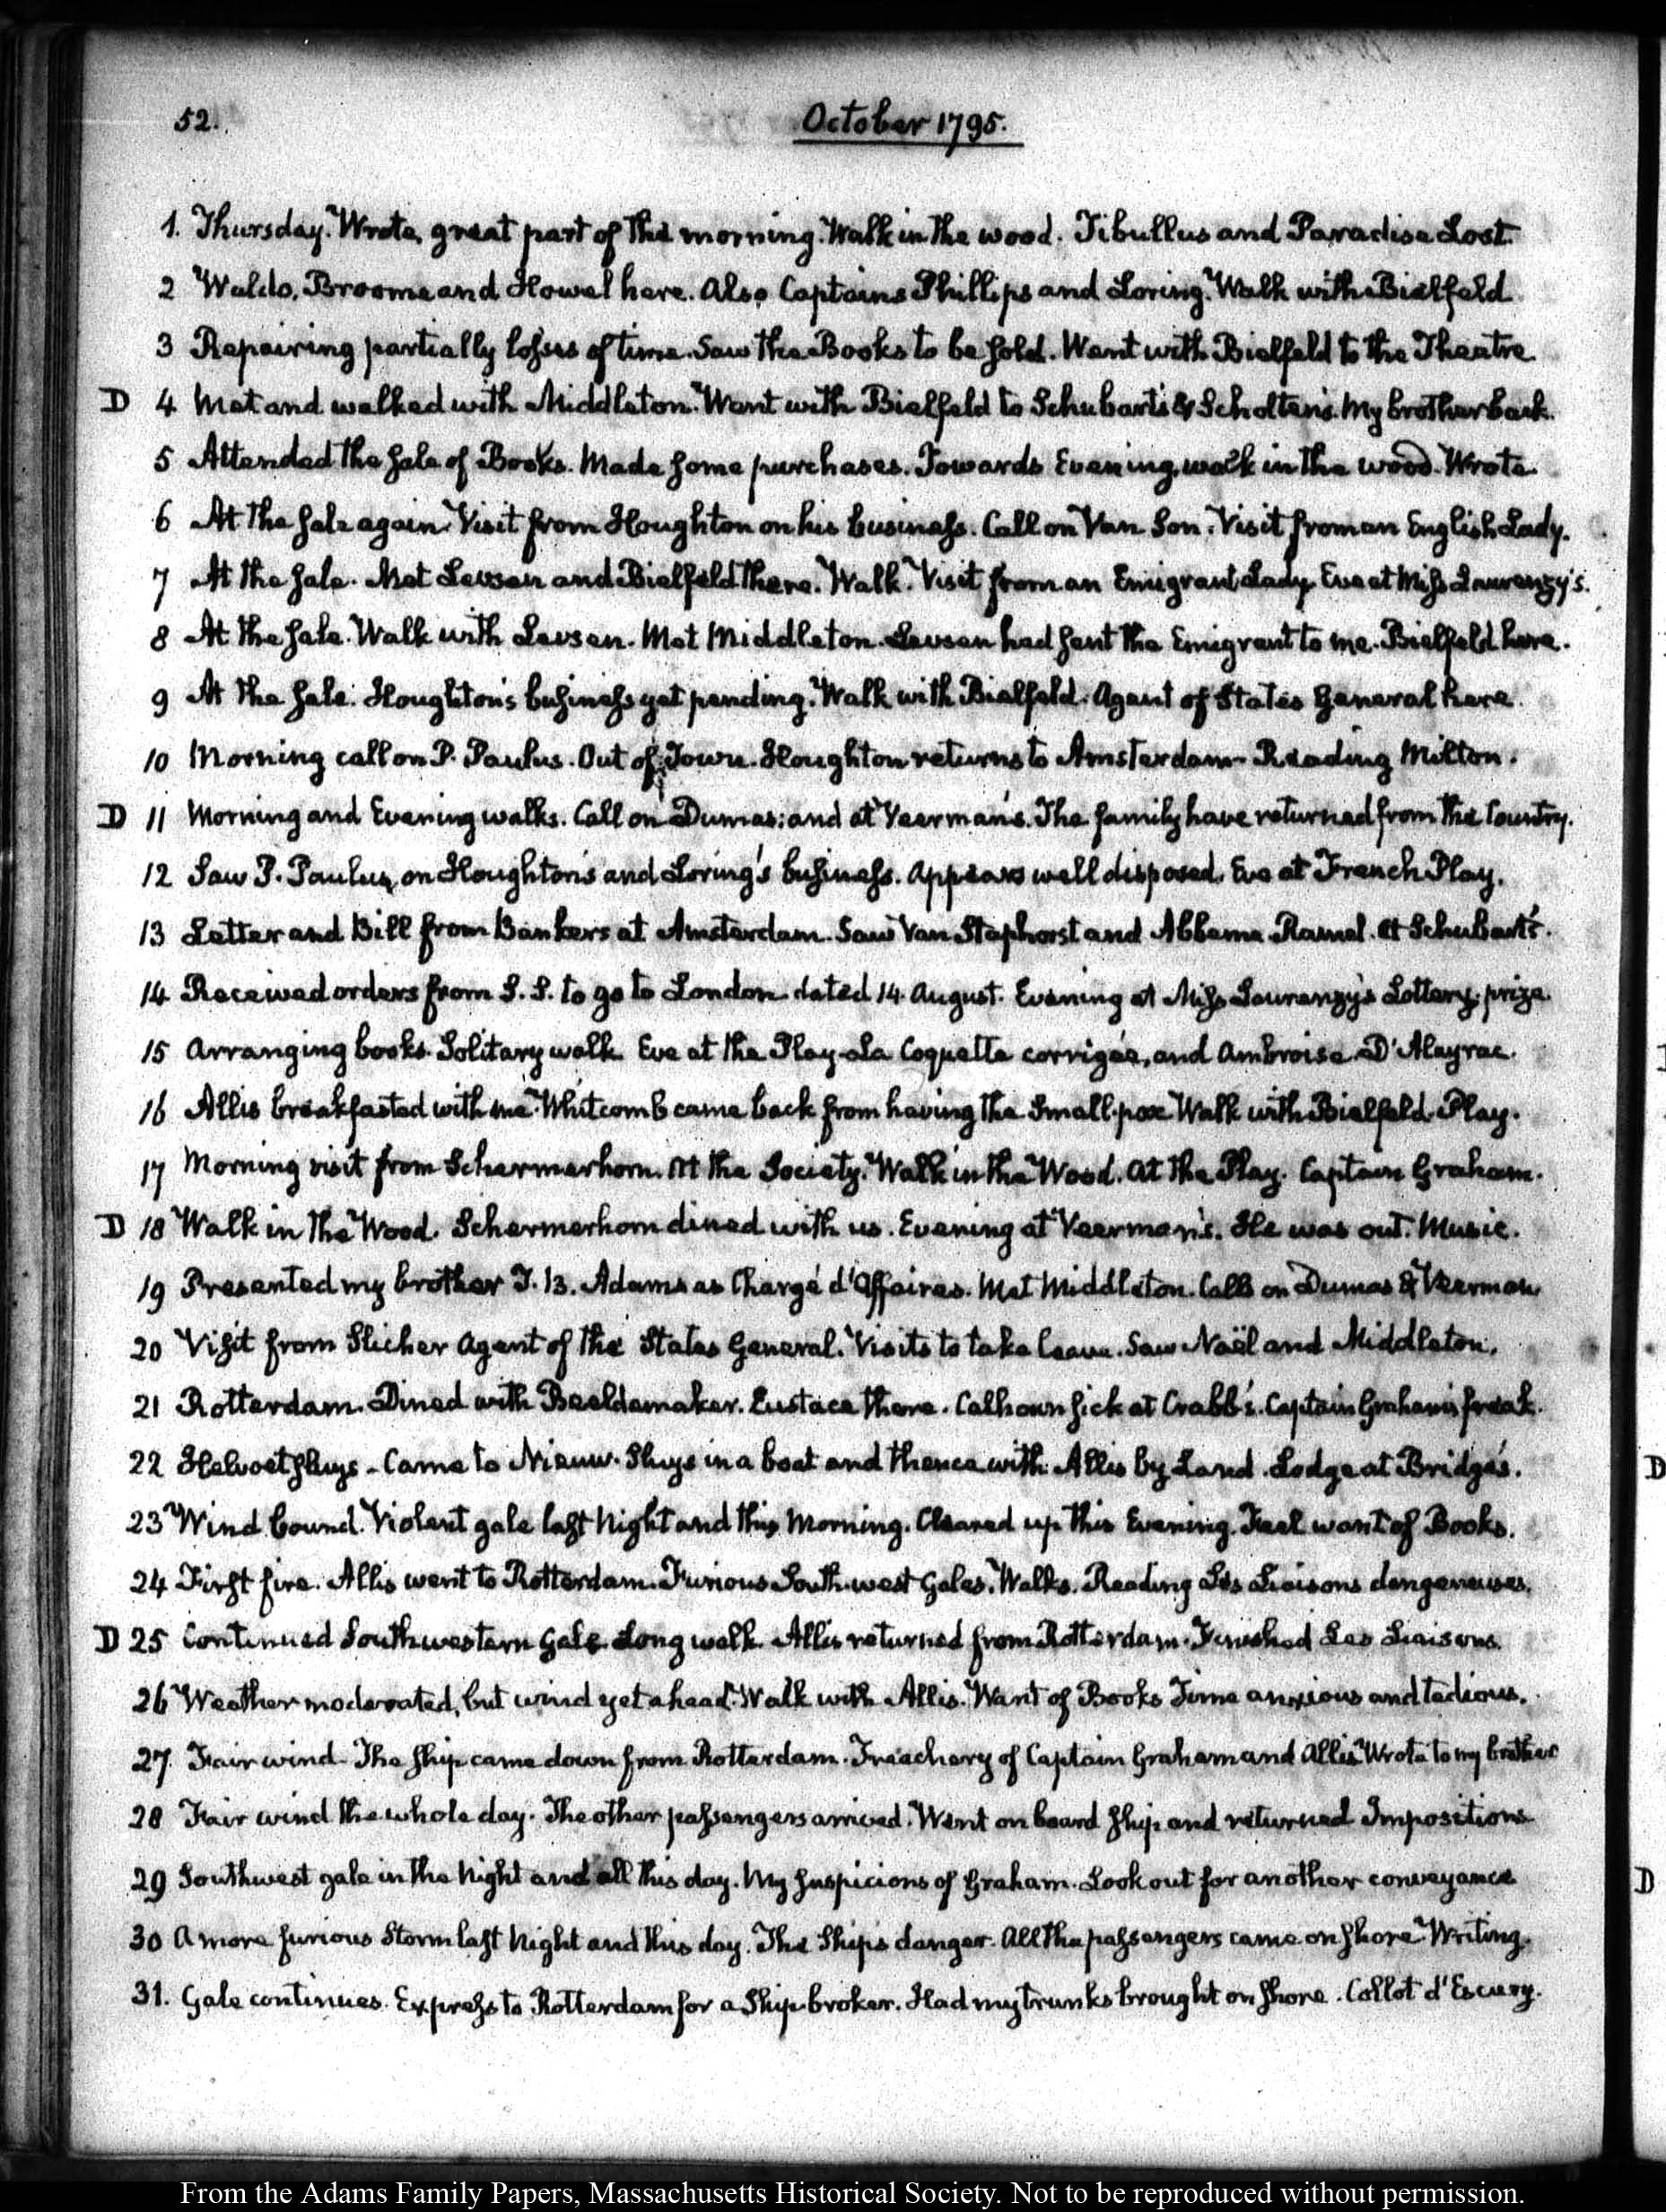 52.
October 1795.
1. Thursday. Wrote, great part of the morning. Walk in the wood. Tibullus and Paradise Lost.
2 Waldo, Broome and Howel here. Also Captains Phillips and Loring. Walk with Bielfeld.
3 Repairing partially losses of time. Saw the Books to be sold. Went with Bielfeld to the Theatre.
D 4 Met and walked with Middleton. Went with Bielfeld to Schubart's & Scholten's. My brother back.
5 Attended the sale of Books. Made some purchases. Towards Evening, walk in the wood. Wrote.
6 At the sale again. Visit from Houghton on his business. Call on Van Son. Visit from an English Lady.
7 At the sale. Met Levsen and Bielfeld there. Walk. Visit from an Emigrant Lady. Eve at Miss Laurenzy's.
8 At the sale. Walk with Levsen. Met Middleton. Levsen had sent the Emigrant to me. Bielfeld here.
9 At the sale. Houghton's business yet pending. Walk with Bielfeld. Agent of States General here.
10 Morning call on P. Paulus. Out of Town. Houghton returns to Amsterdam. Reading Milton.
D 11 Morning and Evening walks. Call on Dumas; and at Veerman's. The family have returned from the Country.
12 Saw P. Paulus, on Houghton's and Loring's business. Appears well disposed. Eve at French Play.
13 Letter and Bill from Bankers at Amsterdam. Saw Van Staphorst and Abbema. Ramel. At Schubart's.
14 Received orders from S. S. to go to London dated 14. August. Evening at Miss Lauranzy's Lottery. prize.
15 Arranging books. Solitary walk. Eve at the Play. La Coquette corrigée, and Ambroise. D'Alayrac.
16 Allis breakfasted with me. Whitcomb came back from having the Small-pox. Walk with Bielfeld. Play.
17 Morning visit from Schermerhorn. At the Society. Walk in the Wood. At the Play. Captain Graham.
D 18 Walk in the Wood. Schermerhorn dined with us. Evening at Veerman's. He was out. Music.
19 Presented my brother T. B. Adams as Chargé d'Affaires. Met Middleton. Calls on Dumas & Veerman
20 Visit from Slicher Agent of the States General. Visits to take leave. Saw Noël and Middleton.
21 Rotterdam. Dined with Beeldemaker. Eustace there. Calhoun sick at Crabb's. Captain Graham's freak.
22 Helvoetsluys - Came to Nieuw-Sluys in a boat and thence with Allis by Land. Lodge at Bridge's.
23 Wind bound. Violent gale last Night and this Morning. Cleared up this Evening. Feel want of Books.
24 First fire. Allis went to Rotterdam. Furious South-west Gales. Walks. Reading Les Liaisons dangereuses.
D 25 Continued Southwestern Gale. Long walk. Allis returned from Rotterdam. Finished Les Liaisons.
26 Weather moderated, but wind yet ahead. Walk with Allis. Want of Books Time anxious and tedious.
27. Fair wind. The ship came down from Rotterdam. Treachery of Captain Graham and Allis. Wrote to my brother
28 Fair wind the whole day. The other passengers arrived. Went on board ship and returned Impositions
29 Southwest gale in the Night and all this day. My suspicions of Graham. Look out for another conveyance
30 A more furious Storm last Night and this day. The Ship's danger. All the passengers came on shore. Writing.
31. Gale continues. Express to Rotterdam for a Ship-broker. Had my trunks brought on shore. Collot d'Escury.
D
D
From the Adams Family Papers, Massachusetts Historical Society. Not to be reproduced without permission.